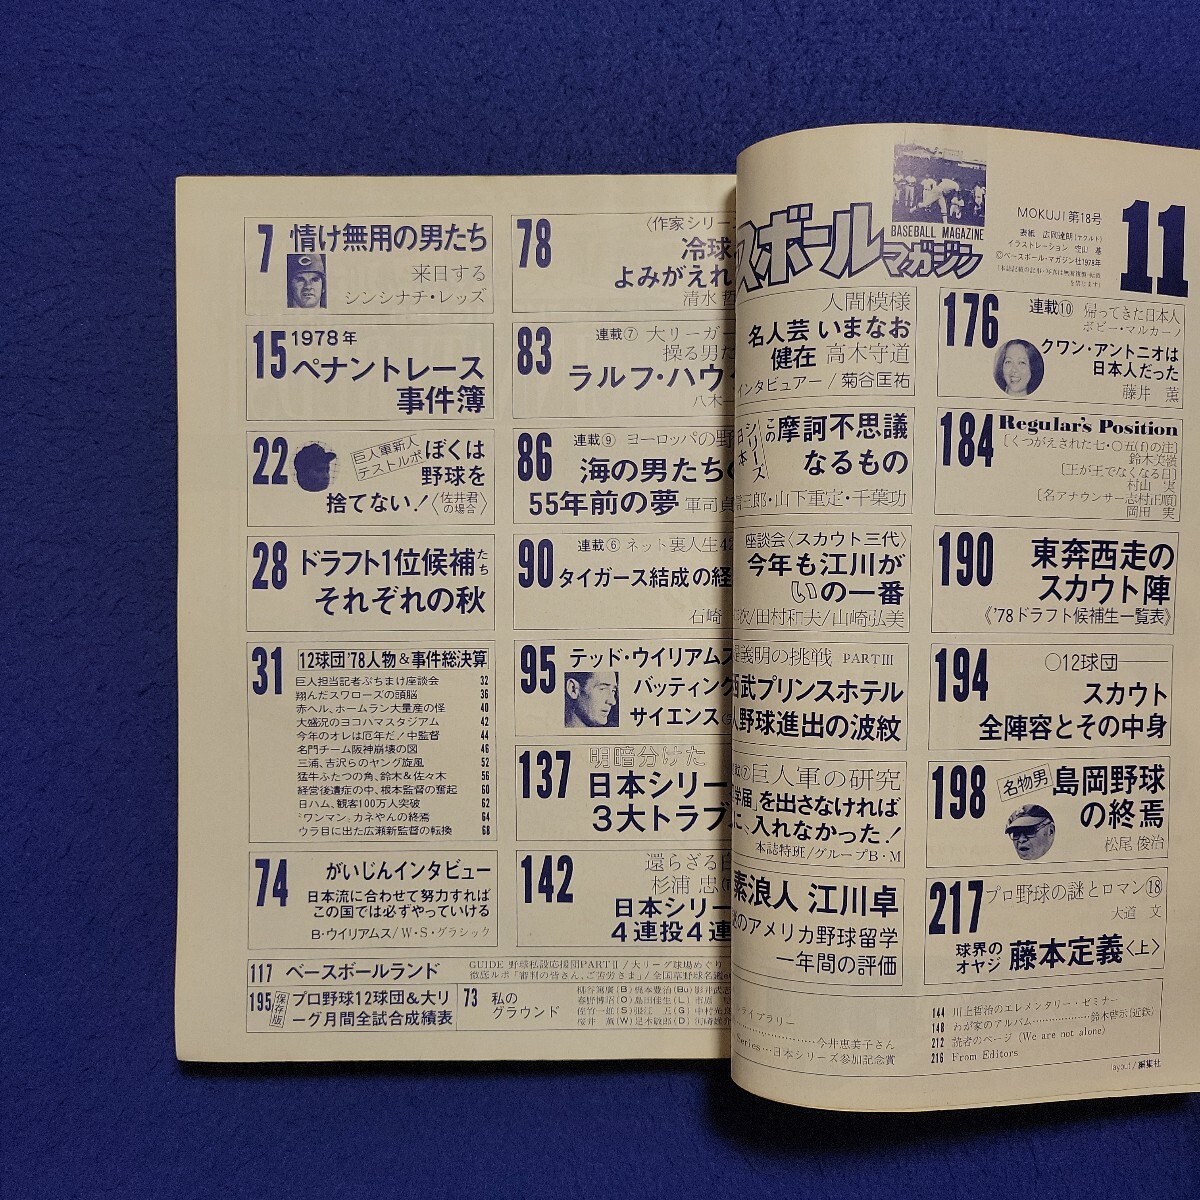 7
情け無用の男たち
来日する
シンシナチ・レッズ
15
1978年
ペナントレース
事件簿
22
巨人軍新人
テストルポ
ぼくは
野球を
捨てない!〈佐井君の場合〉
28
ドラフト1位候補たち
それぞれの秋
31
12球団'78人物&事件総決算
巨人担当記者ぶちまけ座談会 32
翔んだスワローズの頭脳 36
赤ヘル、ホームラン大量産の怪 40
大盛況のヨコハマスタジアム 42
今年のオレは厄年だ!中監督 44
名門チーム阪神崩壊の図 46
三浦、吉沢らのヤング旋風 52
猛牛ふたつの角、鈴木&佐々木 56
経営後遺症の中、根本監督の奮起 60
日ハム、観客100万人突破 62
"ワンマン"カネやんの終焉 64
ウラ目に出た広瀬新監督の転換 68
74
がいじんインタビュー
日本流に合わせて努力すれば
この国では必ずやっていける
B・ウイリアムス/W・S・グラシック
78
〈作家シリー
冷球
よみがえれ
清水
83
連載⑦ 大リーガー
操る男た
ラルフ・ハウ
八木一
86
連載⑨ ヨーロッパの野
海の男たちの
55年前の夢 軍司貞
90
連載⑥ ネット裏人生42
タイガース結成の経
石崎
95
テッド・ウイリアムス
バッティング
サイエンス
137
明暗分けた
日本シリー
3大トラブ
142
還らざる
杉浦 忠
日本シリー
4連投4連
117 ベースボールランド
GUIDE 野球私設応援団PARTⅡ/大リーグ球場めぐり
徹底ルポ「審判の皆さん、ご苦労さま」/全国草野球名鑑
195 保存版
プロ野球12球団&大リ
ーグ月間全試合成績表
73 私の
グラウンド
スボールマガジン
BASEBALL MAGAZINE
MOKUJI 第18号
11
表紙 広岡達朗(ヤクルト)
イラストレーション 空山 基
©ベースボール・マガジン社1978年
人間模様
名人芸 いまなお
健在 高木守道
インタビュアー/菊谷匡祐
シリーズ日本
この摩訶不思議
なるもの
三郎・山下重定・千葉功
座談会〈スカウト三代〉
今年も江川が
いの一番
次/田村和夫/山崎弘美
義明の挑戦 PARTⅢ
西武プリンスホテル
人野球進出の波紋
⑦巨人軍の研究
学届」を出さなければ
に、入れなかった!
本誌特班/グループB・M
素浪人 江川卓
のアメリカ野球留学
一年間の評価
176
連載⑩ 帰ってきた日本人
ボビー・マルカーノ
クワン・アントニオは
日本人だった
藤井 薫
184
Regular's Position
[くつがえされた七・〇五(f)の注]
鈴木美嶺
[王が王でなくなる日]
村山 実
[名アナウンサー志村正順]
岡田 実
190
東奔西走の
スカウト陣
《'78ドラフト候補生一覧表》
194
○12球団——
スカウト
全陣容とその中身
198
名物男
島岡野球
の終焉
松尾俊治
217
プロ野球の謎とロマン⑱
大道 文
球界の
オヤジ
藤本定義〈上〉
ライブラリー
今井恵美子さん
Series…日本シリーズ参加記念賞
144 川上哲治のエレメンタリー・ゼミナー
148 わが家のアルバム……鈴木啓示(近鉄)
212 読者のページ (We are not alone)
216 From Editors
layout/編集社